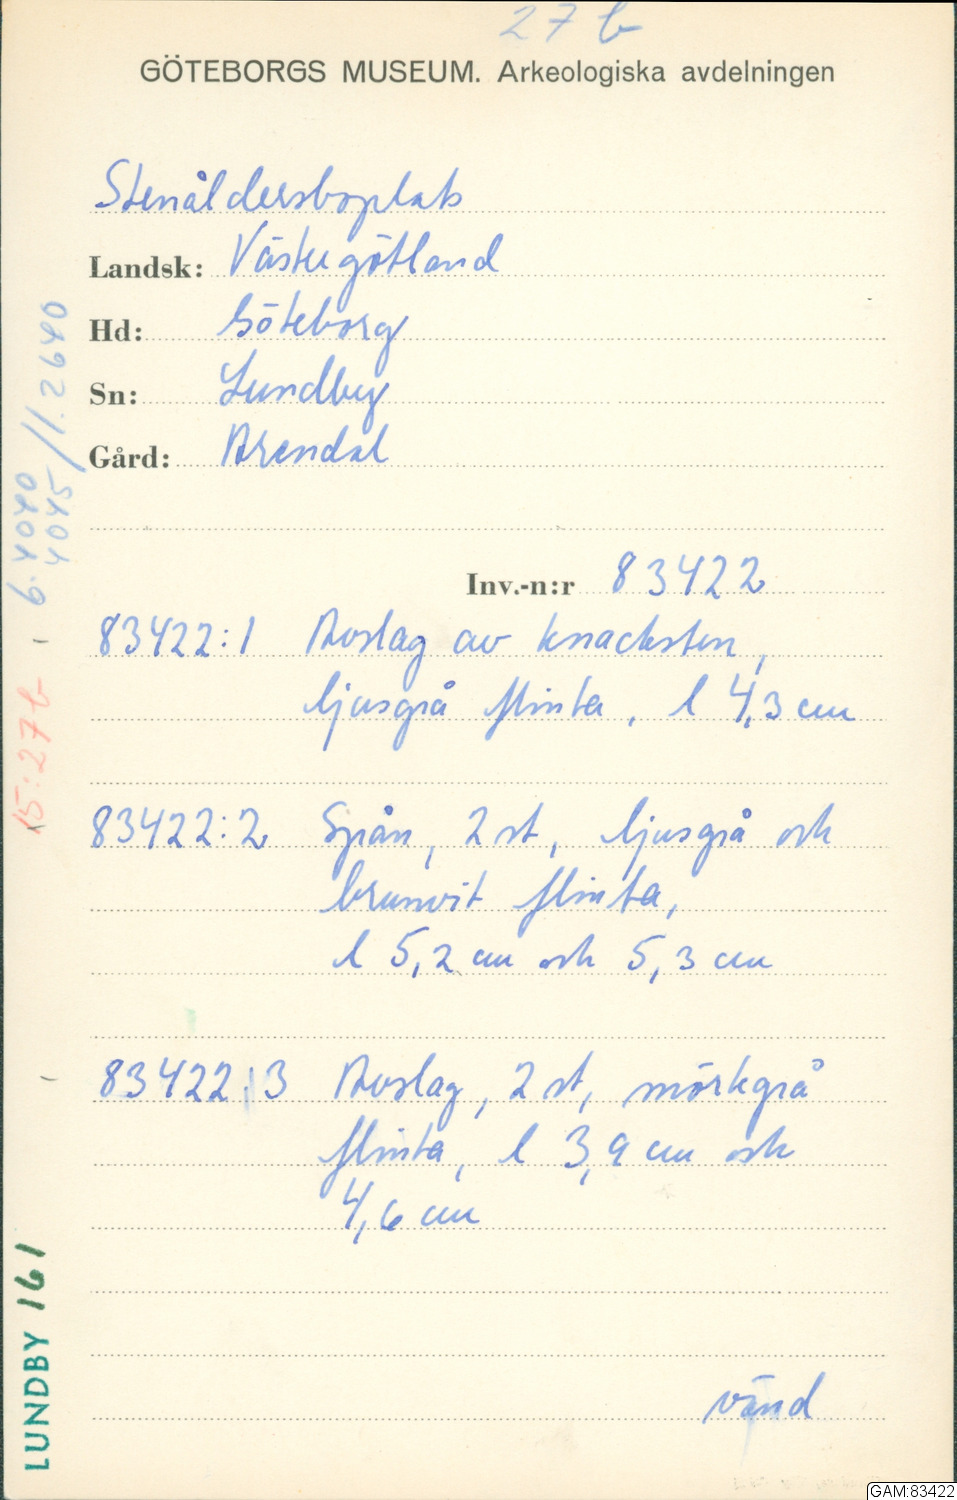 27 b
GÖTEBORGS MUSEUM. Arkeologiska avdelningen
Stenåldersboplats
Landsk: Västergötland
Hd: Göteborg
Sn: Lundby
Gård: Arendal
Inv.-n:r 83422
83422:1 Avslag av knacksten,
ljusgrå flinta, l 4,3 cm
83422:2 Spån, 2 st, ljusgrå och
brunvit flinta,
l 5,2 cm och 5,3 cm
83422:3 Avslag, 2 st, mörkgrå
flinta, l 3,9 cm och
4,6 cm
vänd
LUNDBY 161
15:27b
6.4040
4045 / 1.2640
GAM:83422